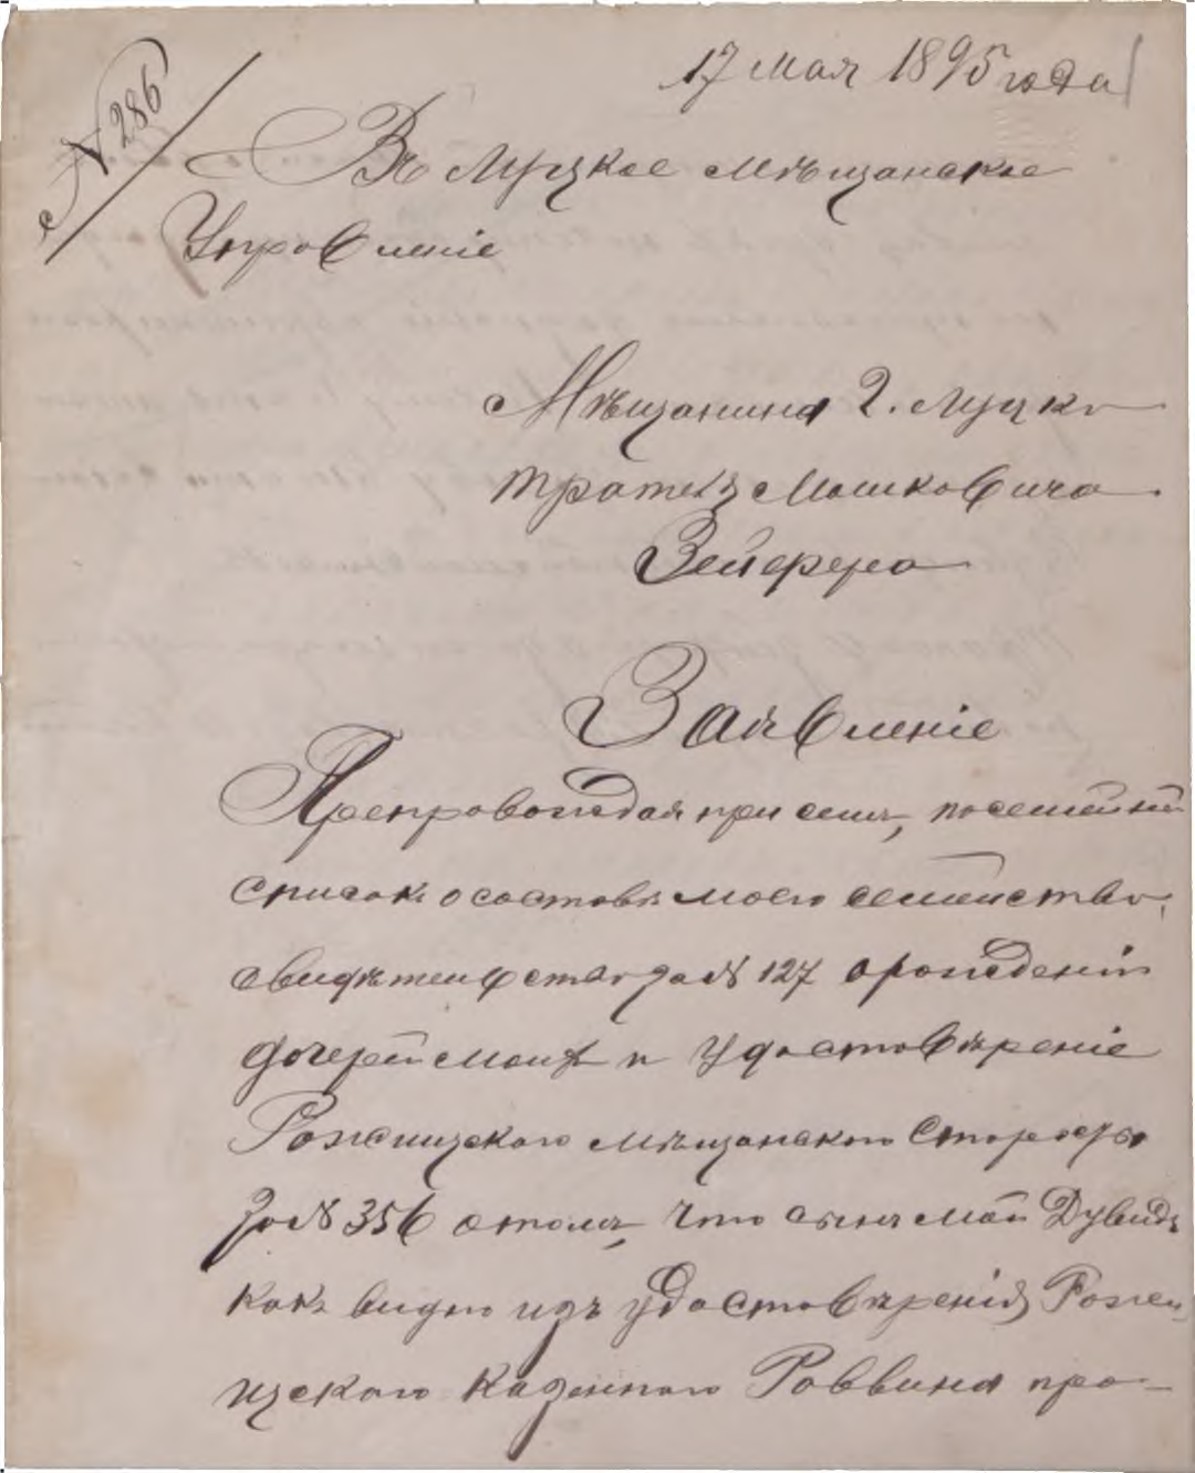 17 мая 1895 года
№ 286
Въ Луцкое мѣщанское
Управленіе
Мѣщанина г. Луцка
Мошковича
Зейфера
Заявленіе
Препровождая при семъ, посемейный
списокъ о составѣ моего семейства,
свидѣтельства за № 127 о рожденіи
дочерей моихъ и удостовѣреніе
Рожищскаго мѣщанскаго Старосты
за № 356 о томъ, что сынъ мой Дувидъ
какъ видно изъ удостовѣренія Рожи
щскаго казеннаго Раввина про-